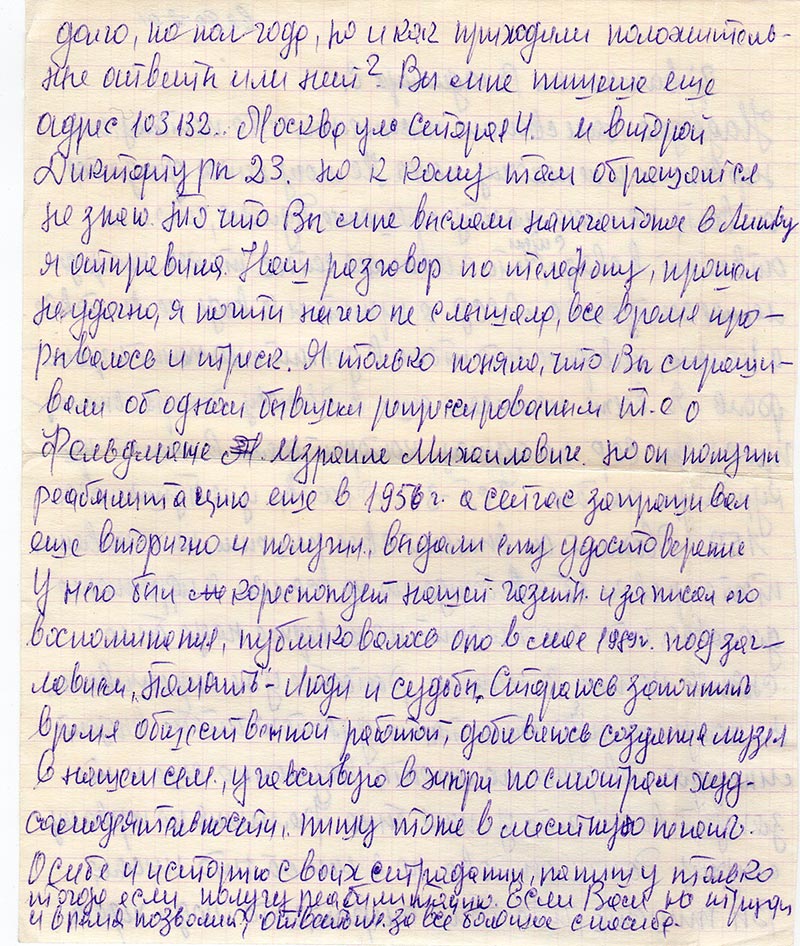 долго, по пол года, но и как приходили положитель-
ные ответы или нет? Вы мне пишете еще
адрес 103132.. Москва ул. Старая 4. и второй
Диктатуры 23. но к кому там обращаться
не знаю. то что Вы мне выслали напечатаное в Минву
я отправила. Наш разговор по телефону, прошол
неудачно, я почти ничего не слышала, все время про-
рывалось и треск. Я только поняла, что Вы спраши-
вали об одном бывшем репресированым т.е о
Фельдмане Израиле Михаиловиче. но он получил
реабилитацию еще в 1956 г. а сейчас запрашивал
еще вторично и получил, выдали ему удостоверение
У него был кореспондент нашей газеты. и записал его
воспоминания, публиковалось оно в мае 1989г. под заг-
лавием „Память"- Люди и судьбы„ Стараюсь заполнить
время общественной работой, добиваюсь создания музея
в нашем селе, учавствую в жюри по смотрам худ-
самодеятельности, пишу тоже в местную печать.
О себе и историю своих страданий, напишу только
тогда если получу реабилитацию. Если Вам не трудно
и время позволит, ответьте. за все большое спасибо.